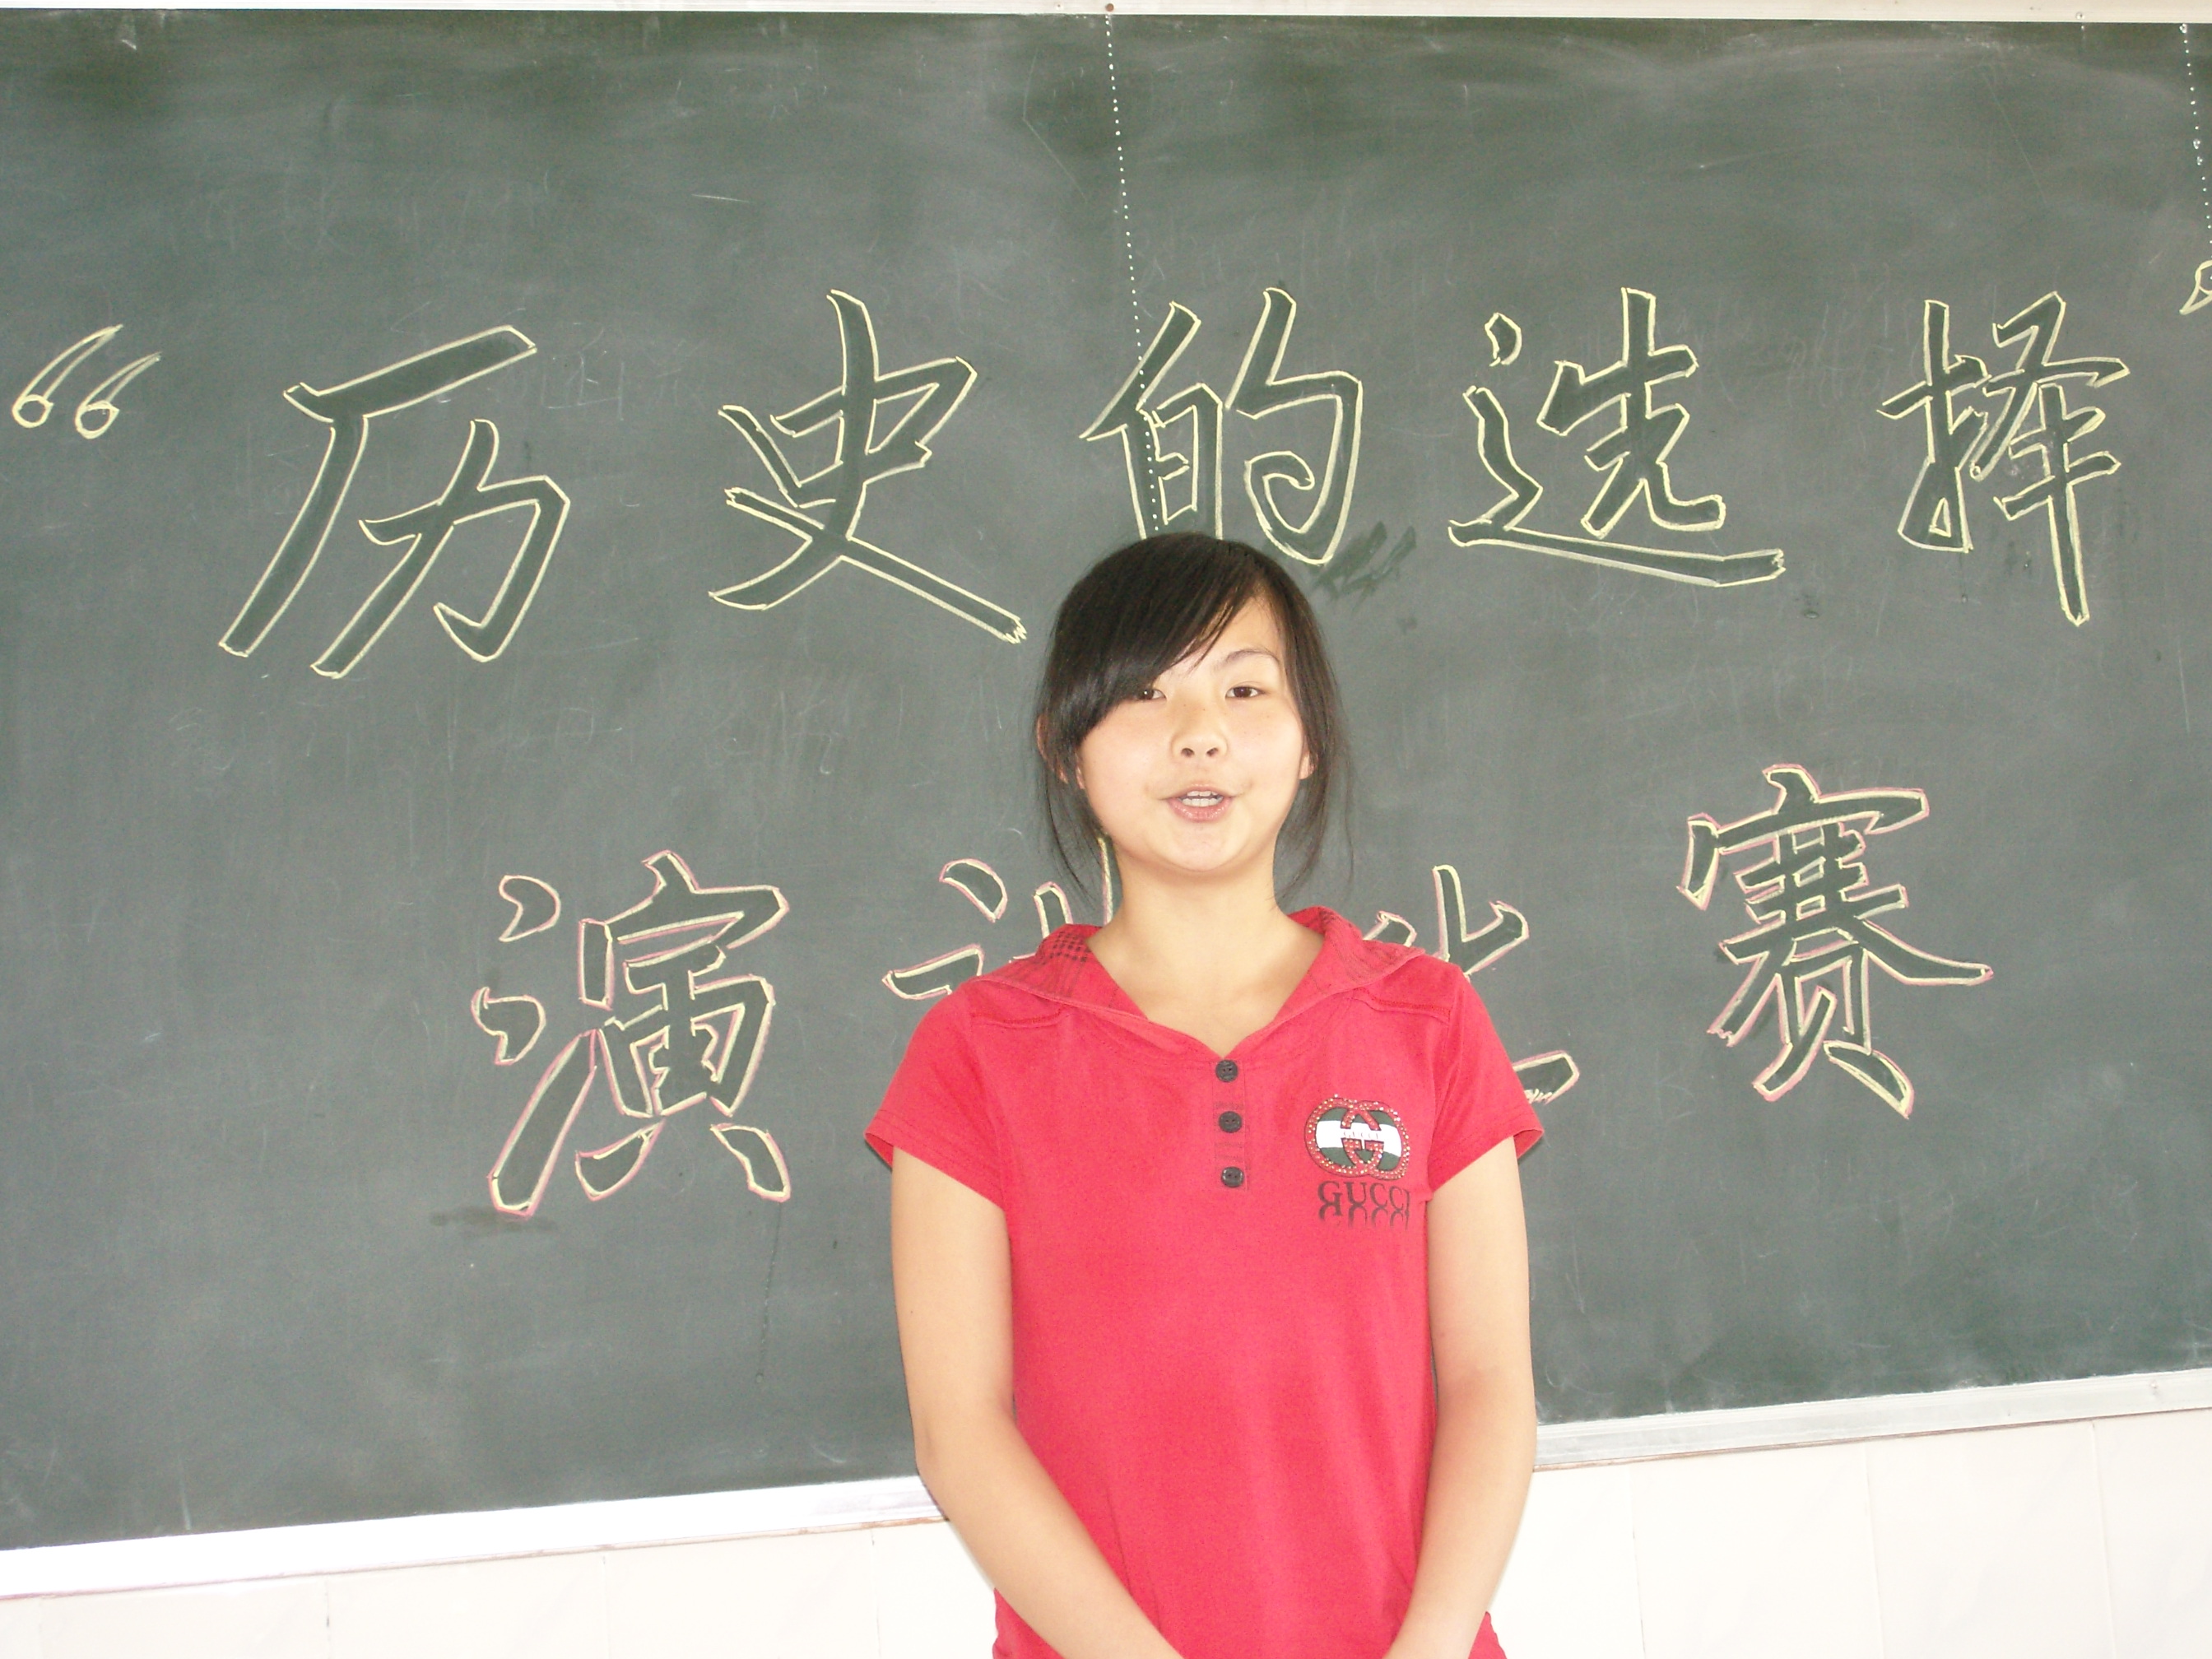 “历史的选择”
演讲比赛
GUCCI